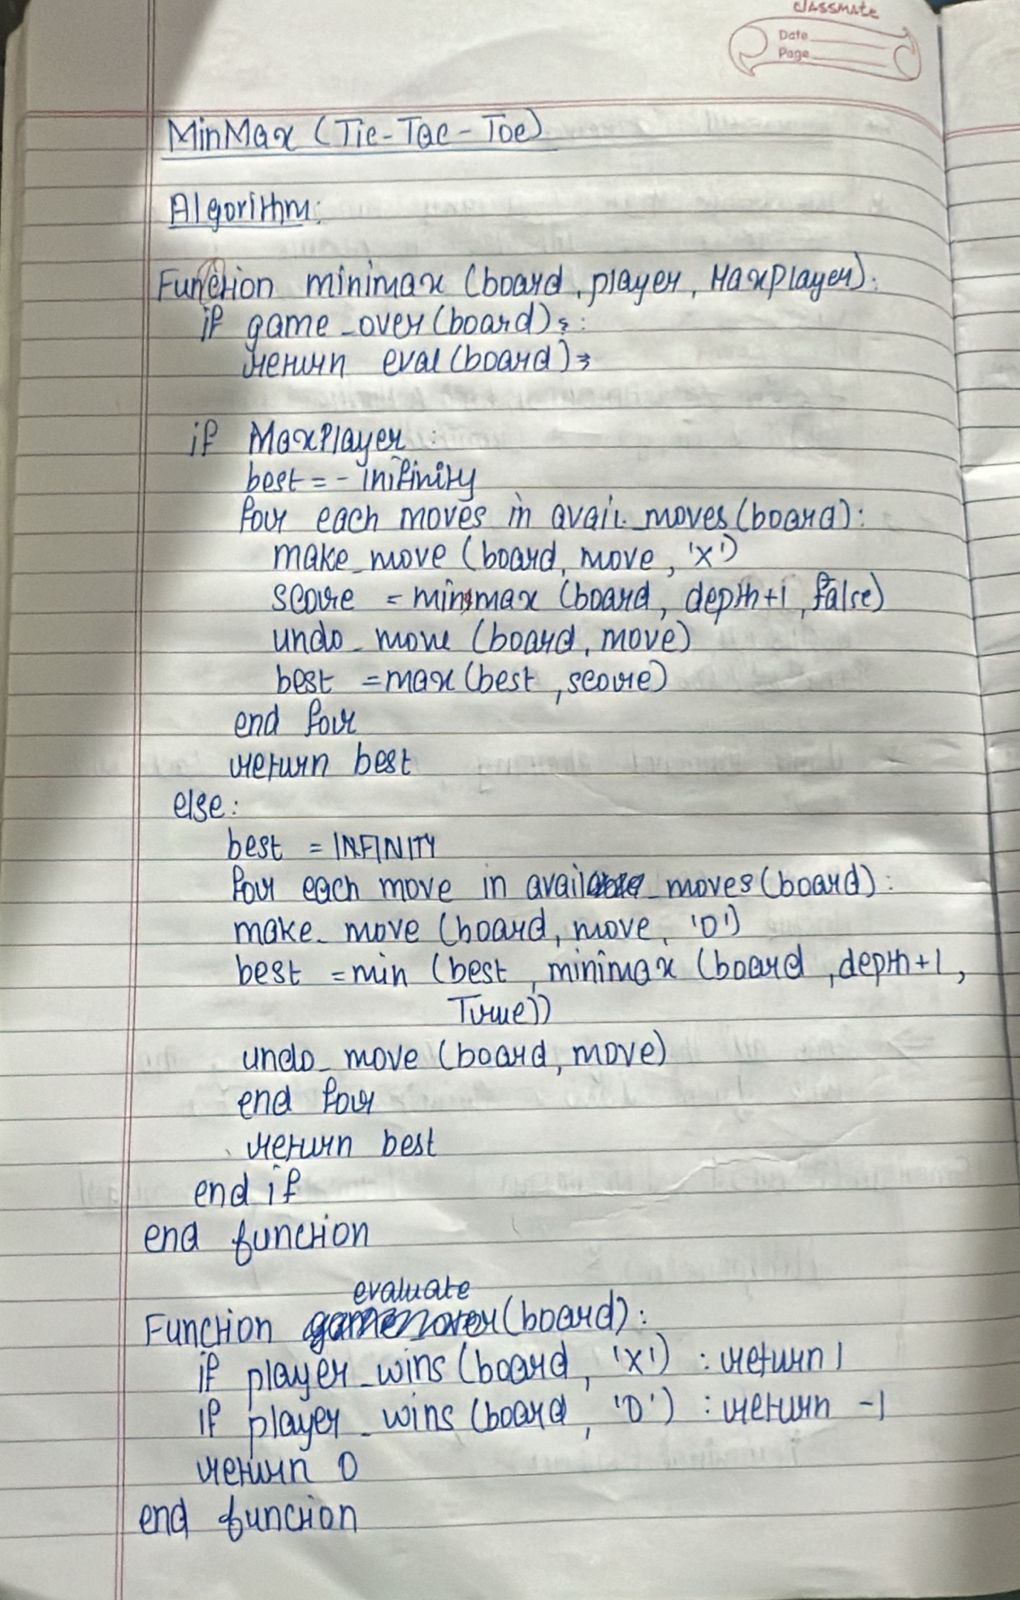 classmate
Date
Page
MinMax (Tic-Tac-Toe)
Algorithm:
Function minimax (board, player, MaxPlayer):
if game_over(board):
return eval(board);
if MaxPlayer:
best = - inifinity
for each moves in avail_moves(board):
make_move (board, move, 'X')
score = minimax (board, depth+1, false)
undo_move (board, move)
best = max (best, score)
end for
return best
else:
best = INFINITY
for each move in available_moves(board):
make_move (board, move, 'O')
best = min (best, minimax (board, depth+1,
True))
undo_move (board, move)
end for
return best
end if
end function
evaluate
Function (board):
if player_wins (board, 'X') : return 1
if player_wins (board, 'O') : return -1
return 0
end function